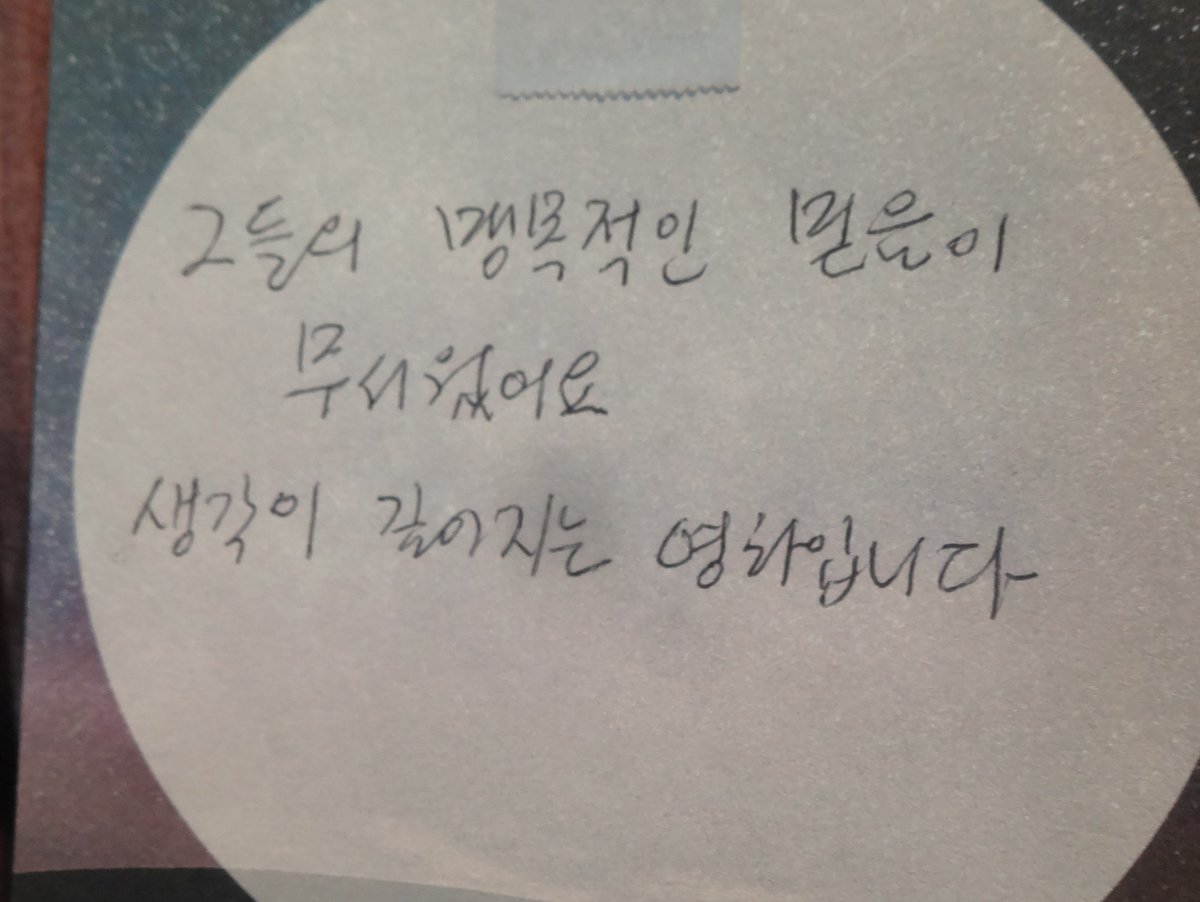 그들의 맹목적인 믿음이
무서웠어요
생각이 깊어지는 영화입니다